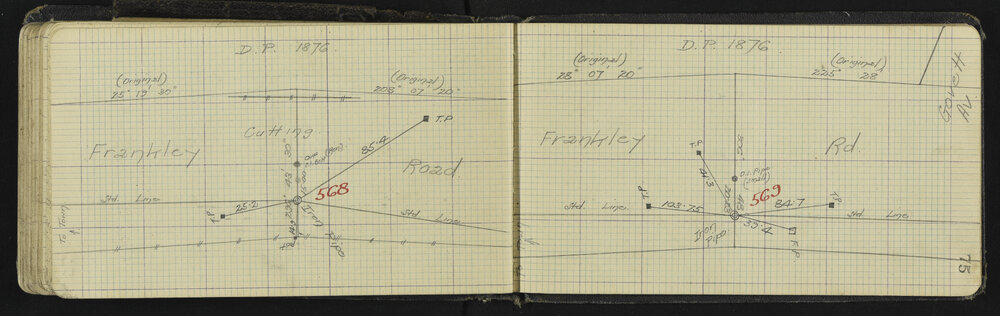 D.P. 1876
(Original)
25° 19' 30"
(Original)
208° 07' 20"
Cutting
T.P
85.4
Frankley
Road
568
25.2
T.P
Std. Line
Std. Line
To Town
Pipe
D.P. 1876
(Original)
28° 07' 20"
(Original)
225° 28'
Frankley
Rd.
T.P
41.3
569
T.P
103.75
84.7
T.P
Std. Line
Std. Line
Iron
Pipe
33.4
F.P
75